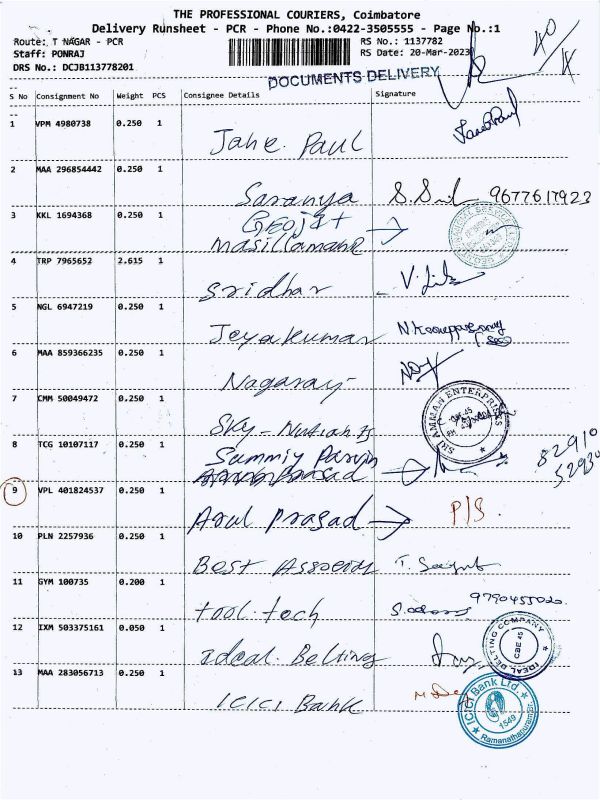 THE PROFESSIONAL COURIERS, Coimbatore
Delivery Runsheet - PCR - Phone No.:0422-3505555 - Page No.:1
Route: T NAGAR - PCR RS No.: 1137782
Staff: PONRAJ RS Date: 20-Mar-2023
DRS No.: DCJB113778201 DOCUMENTS DELIVERY
S No Consignment No Weight PCS Consignee Details Signature
1 VPM 4980738 0.250 1
Jane. Paul
2 MAA 296854442 0.250 1
Saranya 9677617923
3 KKL 1694368 0.250 1
4 TRP 7965652 2.615 1
Sridhar
5 NGL 6947219 0.250 1
Jeyakumar
6 MAA 859366235 0.250 1
Nagaraj
7 CMM 50049472 0.250 1
SRI AMMAN ENTERPRISES
SKY -
8 TCG 10107117 0.250 1
Sammiy Parvin
82910
9 VPL 401824537 0.250 1
Arul Prasad P/S.
10 PLN 2257936 0.250 1
Best
11 GYM 100735 0.200 1
tool.tech
12 IXM 503375161 0.050 1
IDEAL BELTING COMPANY
CBE 45
Ideal. Belting
13 MAA 283056713 0.250 1
ICICI Bank
ICICI Bank Ltd.
1549
Ramanathapuram Br.